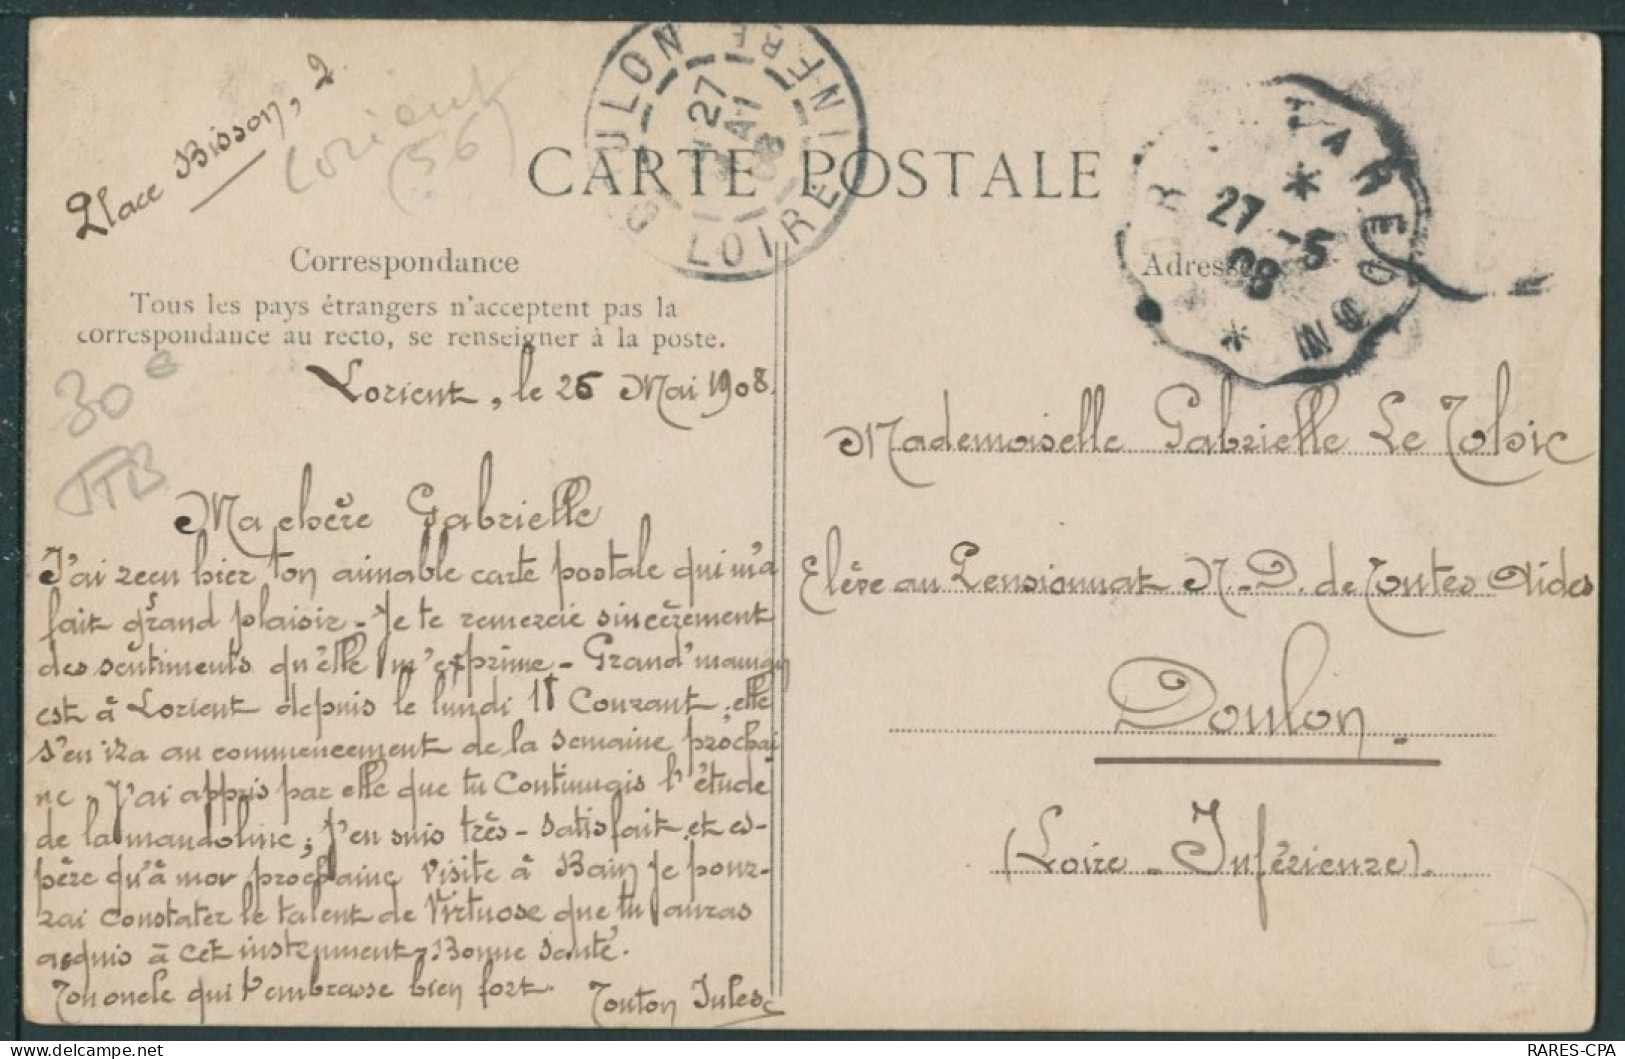 Place Bisson, 2
Lorient
(56)
CARTE POSTALE
DOULON
27
MAI
08
LOIRE INFRE
27 -5
08
Correspondance
Adresse
Tous les pays étrangers n'acceptent pas la
correspondance au recto, se renseigner à la poste.
30 €
TTB
Lorient, le 26 Mai 1908.
Ma chère Gabrielle
J'ai reçu hier ton aimable carte postale qui m'a
fait grand plaisir - Je te remercie sincèrement
des sentiments qu'elle m'exprime - Grand'maman
est à Lorient depuis le lundi 18 Courant, elle
s'en ira au commencement de la semaine prochai
ne - J'ai appris par elle que tu Continuais l'étude
de la mandoline; j'en suis très-satisfait et es-
père qu'à mon prochaine visite à Bain je pour-
rai constater le talent de Virtuose que tu auras
acquis à cet instrument - Bonne santé.
Ton oncle qui t'embrasse bien fort.
Tonton Jules
Mademoiselle Gabrielle Le Tohic
Elève au Pensionnat N.-D. de Toutes Aides
Doulon
(Loire - Inférieure).
RARES-CPA